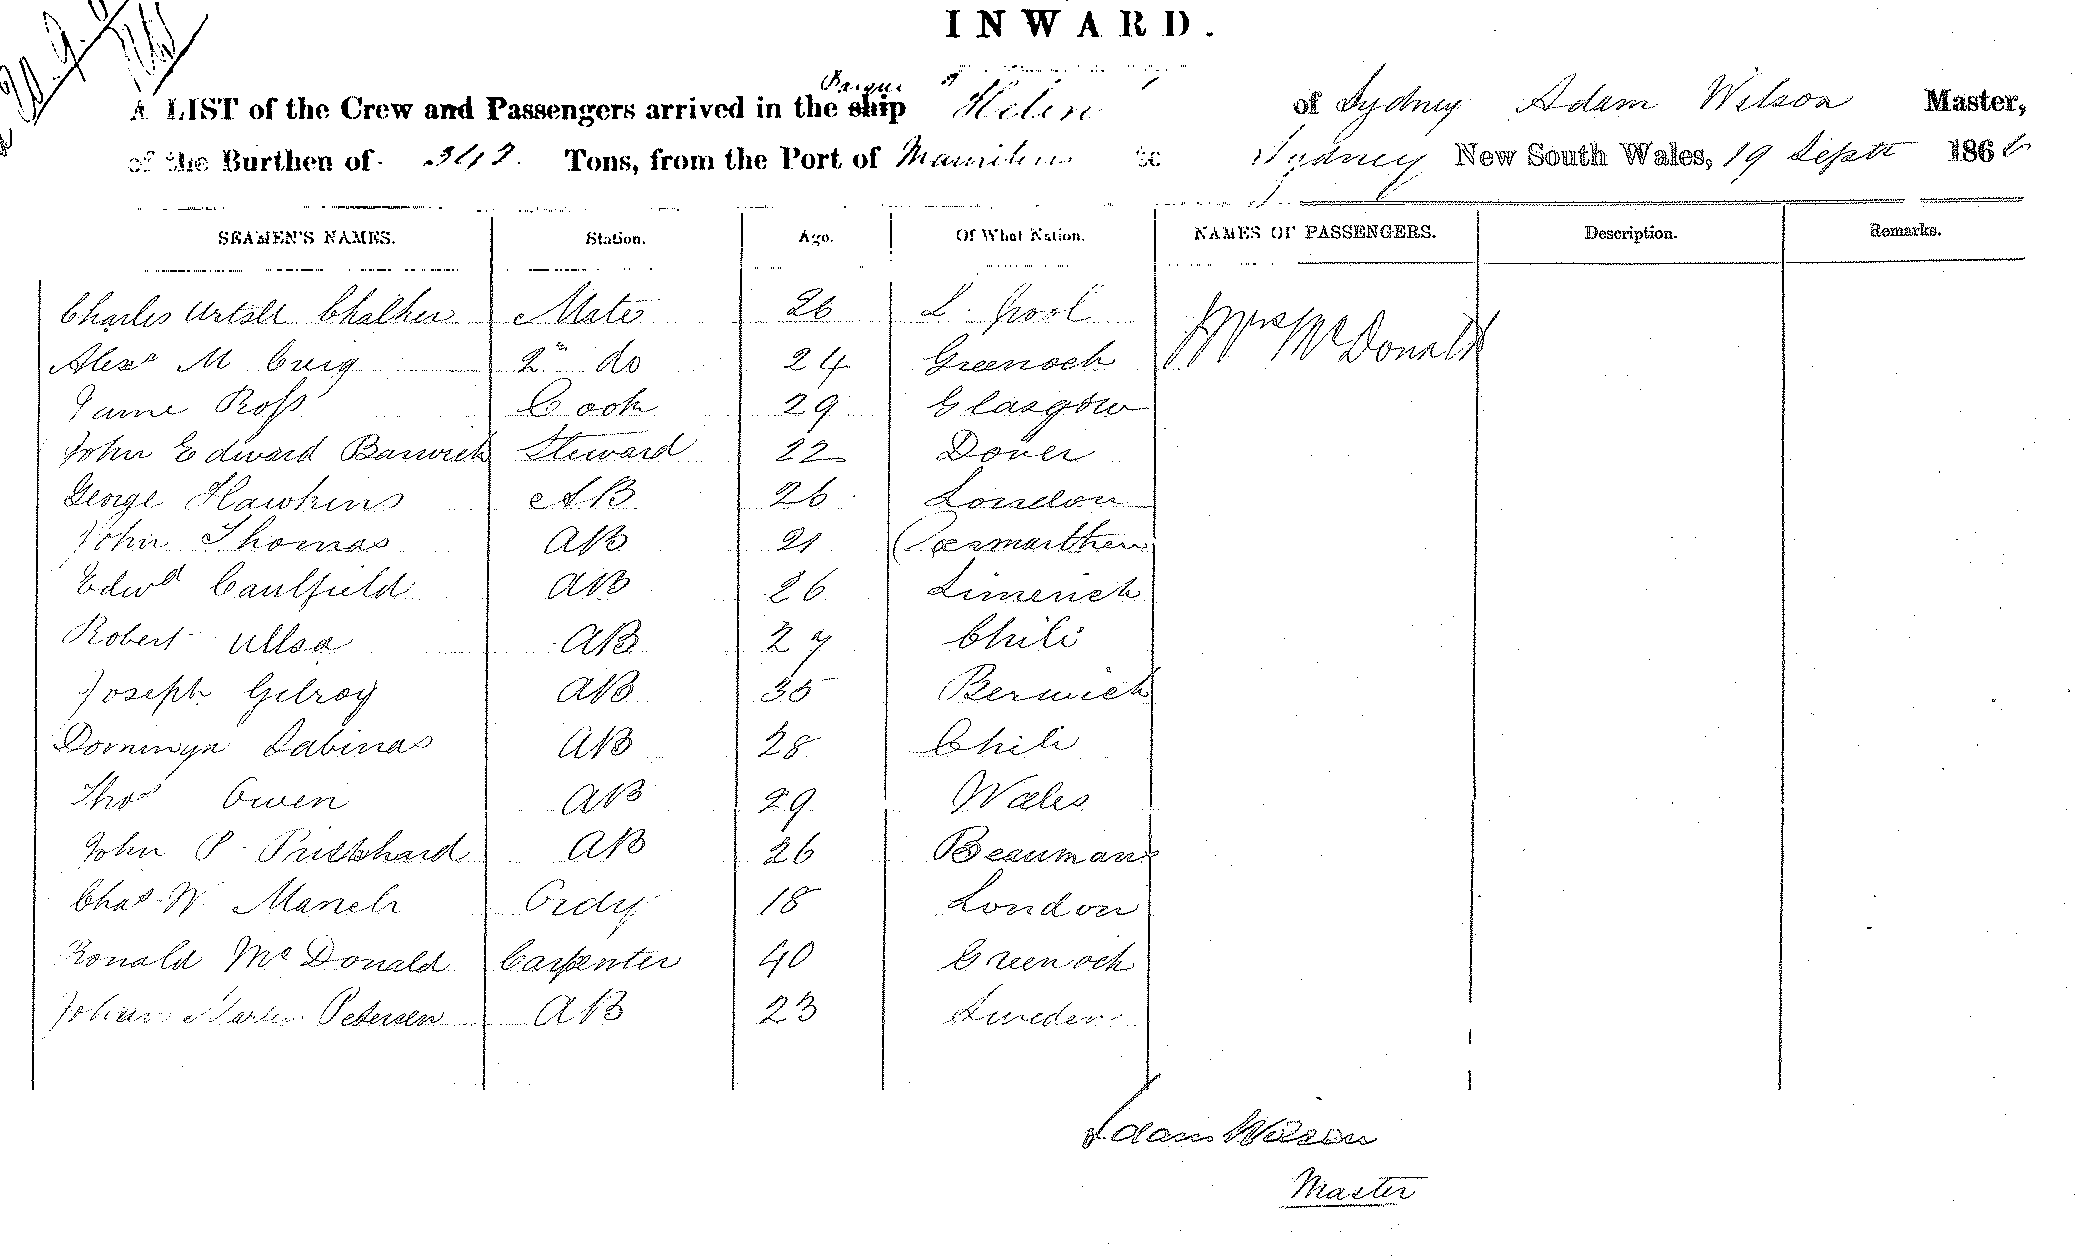 INWARD.
A LIST of the Crew and Passengers arrived in the ship Barque "Helen" of Sydney Adam Wilson Master,
of the Burthen of Tons, from the Port of Mauritius to Sydney New South Wales, 19 Septr 1866
SEAMEN'S NAMES. Station. Age. Of What Nation. NAMES OF PASSENGERS. Description. Remarks.
Charles Chalker Mate 26 L. pool Mrs McDonald
Alexr M Creig 2nd do 24 Greenock
Jame Ross Cook 29 Glasgow
John Edward Barwick Steward 22 Dover
George Hawkins AB 26 London
John Thomas AB 21 Caermarthen
Edwd Caulfield AB 26 Limerick
Robert Ullsa AB 27 Chili
Joseph Gilroy AB 35 Berwick
Domingn Sabinas AB 28 Chili
Thos Owen AB 29 Wales
John P. Pritchard AB 26 Beaumaris
Chas W. March Ordy 18 London
Ronald McDonald Carpenter 40 Greenock
Johan Martin Petersen AB 23 Sweden
Adam Wilson
Master